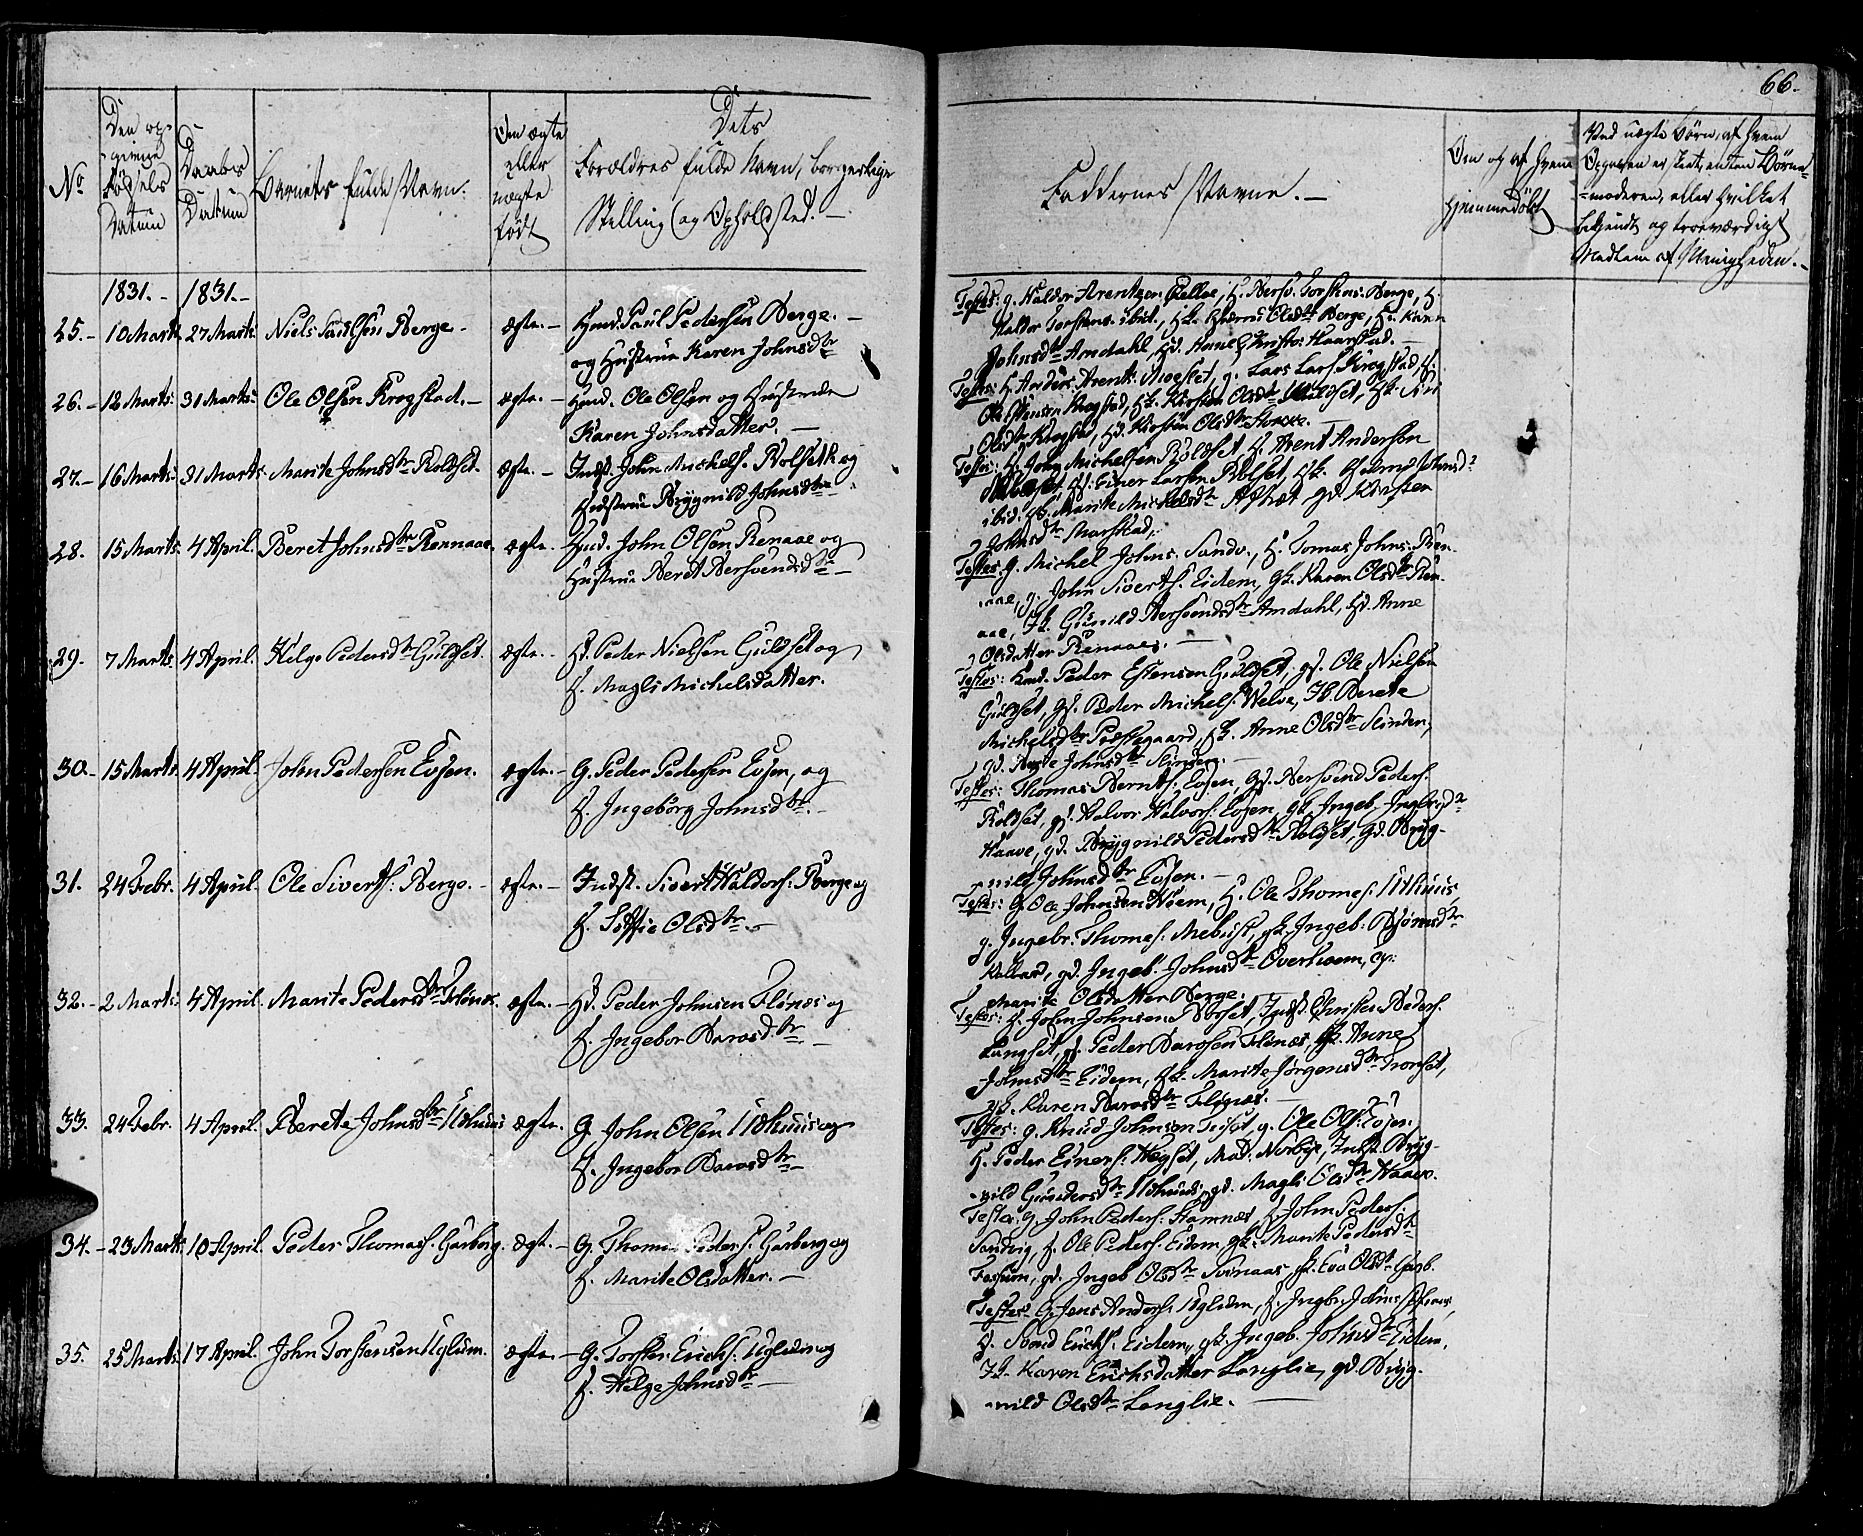 66.
No
Den op-
givne
Fødsels
Datum
Daabs
Datum
Barnets fulde Navn.
Om ægte
eller
uægte
født
Dets
Forældres fulde Navn, borgerlige
Stilling og Opholdsted. —
Faddernes Navne. —
Om og af hvem
hjemmedöbt
Ved uægte Börn, af hvem
Opgaven er skeet, enten Börne-
moderen, eller hvilket
bekjendt og troeværdigt
Medlem af Menigheden. —
1831. - 1831. -
25. - 10 Marts 27 Marts Niels Paulsen Berge - ægte. - Huusmd. Paul Pedersen Berge. -
og Hustrue Karen Johnsdtr
Testes: g. Haldor Arentzen Selboe, H. Bersv. Torstens. Berge, H.
Haldor Torstens. ibid., Hk. Olsdtr Berge, Hk. Karen
Johnsdtr Amdahl, Hd. Kristos Kaarstad. -
26. - 12 Marts 31 Marts Ole Olsen Krogstad. - ægte. - Huusmd. Ole Olsen og Hustrue
Karen Johnsdatter. -
Testes: H. Anders Arents. Moeslet, g. Lars Lars. Krogstad, H.
Ole Krogstad, Hk. Kirsten Olsdtr Uldset, Hk. Siri
Olsdtr Krogstad, Hd. Kirsten Olsdtr
27. - 16 Marts 31 Marts Marite Johnsdtr Rolset. ægte. - Indst. John Michels. Rolset og
Hustrue Brÿgnild Johnsdtr
Testes: H. John Michelsen Rolset, H. Arent Andersen
Einer Larsen Rolset, Hk. Johnsd:
ibid. Marite Michelsdtr Gd. Kirsten
Johnsdtr Marstad.
28. 15 Marts 4 April. Beret Johnsdtr Rennaae. ægte. - Huusmd. John Olsen Renaae og
Hustrue Beret Bersvendsdtr -
Testes: g. Michel Johns. Sandv., H. Tomas Johns. Ren-
naae, g. John Siverts. Eidem, gk. Karen Olsdtr Ren-
aae, Ik. Gunild Bersvendsdtr Amdahl, Hd. Anne
Olsdatter Renaae. -
29. 7 Marts 4 April. Helge Pedersdtr Guldset. ægte. - Hd. Peder Nielsen Guldset og
H. Magli Michelsdatter.
Testes: Peder Estensen Guldset, gd. Ole Nielsen
Guldset, gd. Peder Michels. Velve, Ik. Berete
Michelsdtr Præstegaard, Hk. Anne Olsdtr Slinden,
gd. Johnsdtr Slinden. -
30. - 15 Marts 4 April. John Pedersen Evjen. ægte. - G. Peder Pedersen Evjen, og
H. Ingebörg Johnsdtr. -
Testes: Thomas Bernts. Evjen, gd. Bersvend Peders.
Rolset, gd. Halvor Halvors. Evjen, gk. Ingeb. Ingebr:d:
Haave, gd. Brÿgnild Pedersdtr Rolset, gd. Brÿg-
nild Johnsdtr Evjen. -
31. 24 Febr. 4 April. Ole Siverts. Berge. - ægte. - Indst. Sivert Haldors. Berge og
H. Siffie Olsdtr. -
Testes: g. Ole Johnsen Hoem, H. Ole Thomes. Udhuus,
g. Ingebr. Thomes. Mebust, gk. Ingeb. Björnsdtr
gd. Ingeb. Johnsdtr Overhoem, og
Marite Olsdatter Berge.
32. - 2 Marts 4 April. Marite Pedersdtr Flönæs. ægte. - Hd. Peder Johnsen Flönæs og
H. Ingebor Baraosdtr. -
Testes: H. John Johnsen Indst. Christen Peders.
Langset, gd. Peder Baroesen Flönæs, Hk. Anne
Johnsdtr Eidem, Hk. Marite Jörgensdtr
gk. Karen Baraosdtr Flönæs. -
33. 24 Febr. 4 April. Berete Johnsdtr Udhuus ægte. G. John Olsen Udhuus og
H. Ingebor Baraosdtr -
Testes: g. Knud Johnsen g. Ole Ols. Evjen.
H. Peder Einers. Hegset, Mad. Norbye, Indst. Brÿg-
nild Gundersdtr Udhuus, gd. Magli Olsdtr Haave.
34. - 23 Marts 10 April. Peder Thomas. Garberg. ægt. - G. Thomas Peders. Garberg og
H. Marite Olsdatter. -
Testes: g. John Peders. Stamnæs, H. John Peders.
Sandvig, H. Ole Peders. Eidem, gk. Marite Pedersdtr
Fossum, gd. Ingeb Olsdtr Svinaas, H. Eva Olsdtr Garb.
35. 25 Marts 17 April. John Torstensen Uglum. ægte. - G. Torsten Erichs. Uglum og
H. Helge Johnsdtr -
Testes: G. Jens Anders. Uglum, H. Ingbr. Johns.
H. Svend Erichs. Eidem, gk. Ingeb. Johnsdtr Eidem,
Ik. Karen Erichsdatter Langlie, gd. Brÿg-
nild Olsdtr Langlie. -